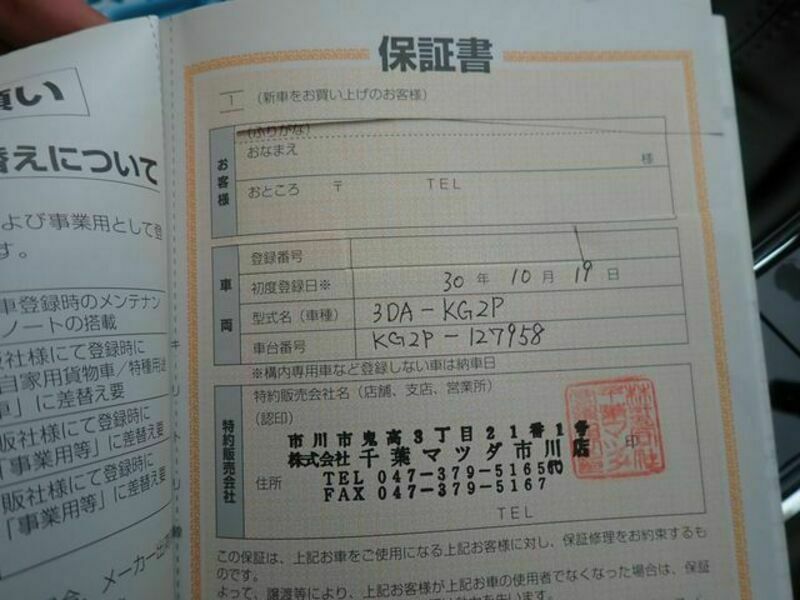 買い
替えについて
よび事業用として登
す。
車登録時のメンテナン
ノートの搭載
販社様にて登録時に
自家用貨物車／特種用途
車」に差替え要
販社様にて登録時に
「事業用等」に差替え要
販社様にて登録時に
「事業用等」に差替え要
メーカー出
キリトリ線
保証書
1 （新車をお買い上げのお客様）
お客様
（ふりがな）
おなまえ 様
おところ 〒 TEL
車両
登録番号
初度登録日※ 30年 10月 19日
型式名（車種） 3DA-KG2P
車台番号 KG2P-127958
※構内専用車など登録しない車は納車日
特約販売会社
特約販売会社名（店舗、支店、営業所）
（認印）
市川市鬼高3丁目21番1号
株式会社 千葉マツダ市川店 印
住所 TEL 047-379-5165㈹
FAX 047-379-5167
TEL
この保証は、上記お車をご使用になる上記お客様に対し、保証修理をお約束するも
のです。
よって、譲渡等により、上記お客様が上記お車の使用者でなくなった場合は、保証